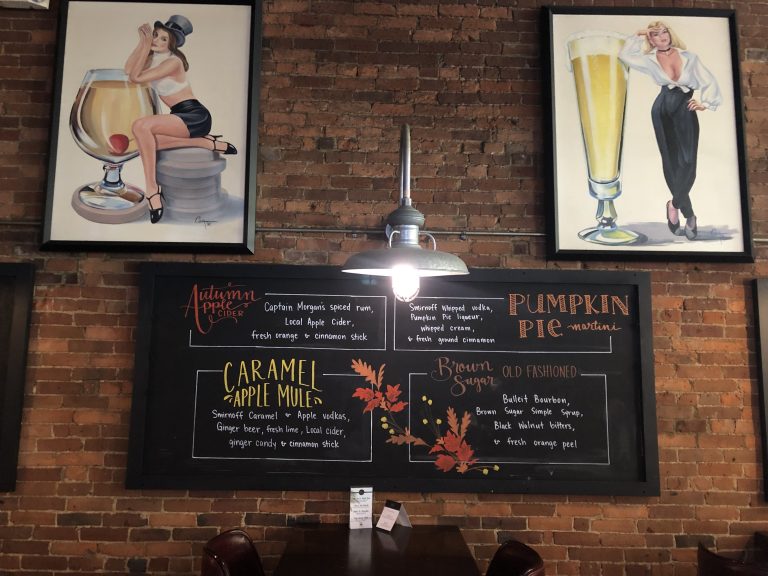 Autumn
Apple
CIDER
Captain Morgan's spiced rum,
Local Apple Cider,
fresh orange & cinnamon stick
Smirnoff Whipped vodka,
Pumpkin Pie liqueur,
whipped cream,
& fresh ground cinnamon
PUMPKIN
PIE martini
CARAMEL
APPLE MULE
Smirnoff Caramel & Apple vodkas,
Ginger beer, fresh lime, Local cider,
ginger candy & cinnamon stick
Brown
Sugar OLD FASHIONED
Bulleit Bourbon,
Brown Sugar Simple Syrup,
Black Walnut bitters,
& fresh orange peel